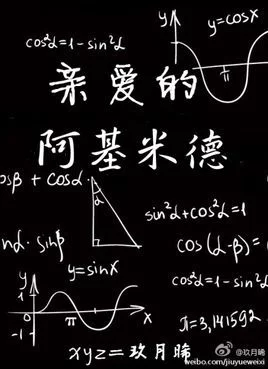 y
y=cosx
cos²α=1-sin²α
π
亲爱的
阿基米德
osβ + cosα
α
sin²α+cos²α=1
nα·sinβ
cos(α-β)=
y=sinx
y
1
cos²α=1-sin²
-1
π
x
π=3,141592
xyz=玖月晞
weibo.com/jiuyueweixi